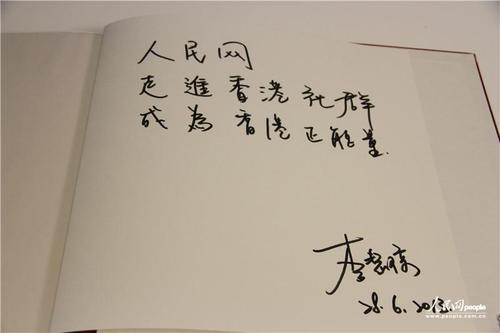 人民网
走進香港社群
成為香港正能量.
李慧琼
28.6.2013
人民网 people
www.people.com.cn